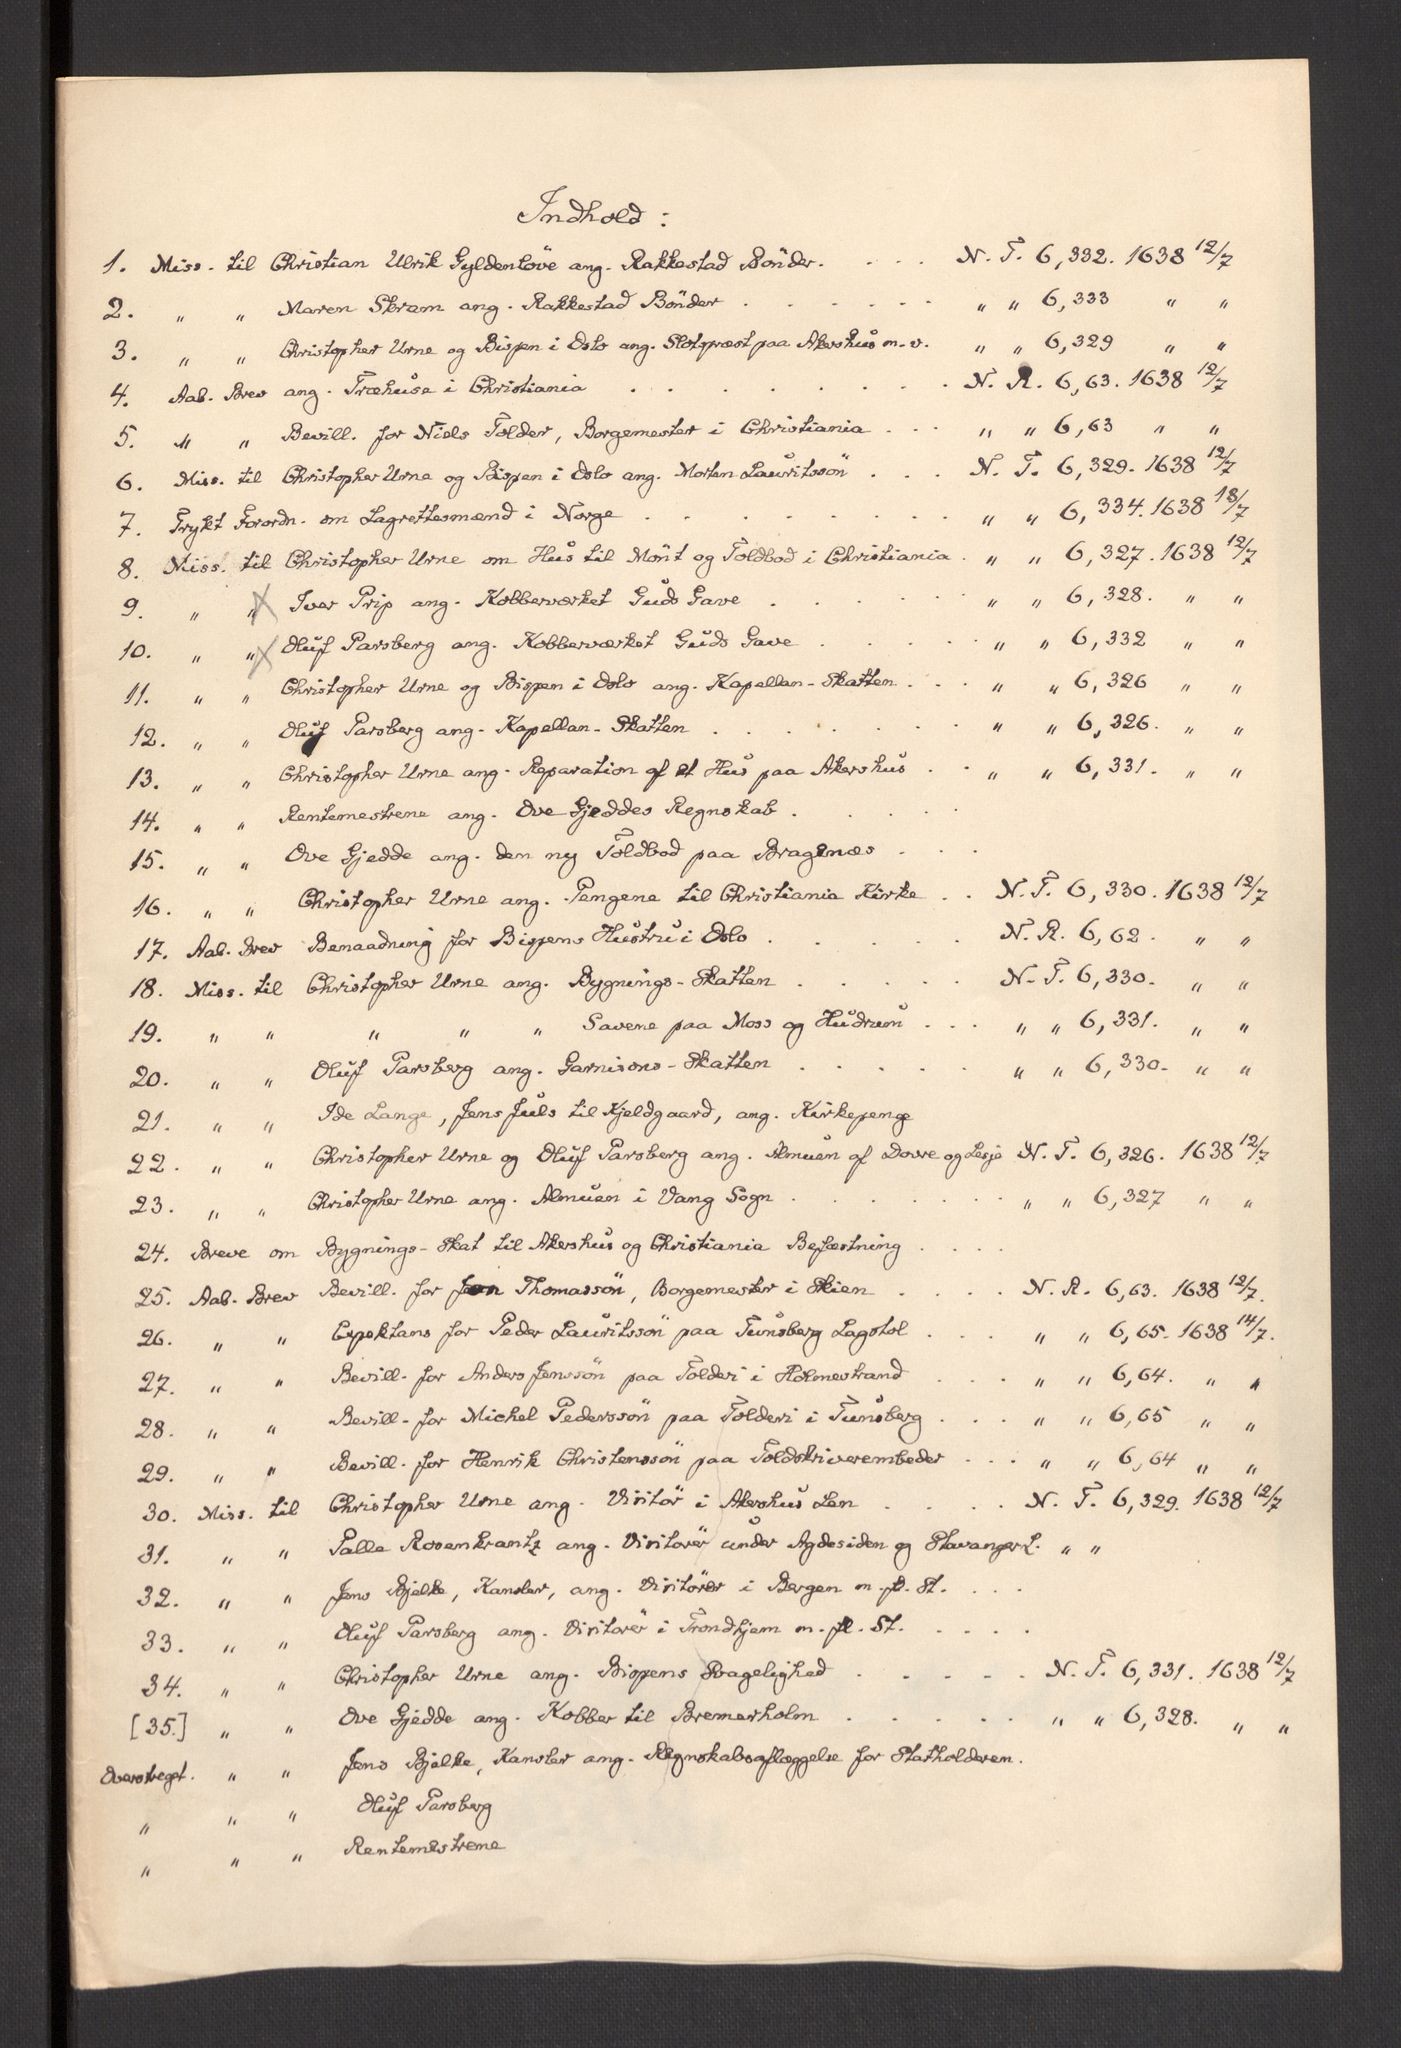 Indhold:
1. Miss. til Christian Ulrik Gyldenlöve ang. Rakkestad Bönder. . . . . N. T. 6,332. 1638 12/7
2. " " Maren Skram ang. Rakkestad Bönder . . . . . . " " 6,333 " "
3. " " Christopher Urne og Bispen i Oslo ang. Slotspræst paa Akershus m.v. " " 6,329 " "
4. Aab. Brev ang. Træhuse i Christiania . . . . . . . . N. R. 6,63. 1638 12/7
5. " " Bevill. for Niels Tolder, Borgemester i Christiania . . . " " 6,63 " "
6. Miss. til Christopher Urne og Bispen i Oslo ang. Morten Lauritssön . . . N. T. 6,329. 1638 12/7
7. Trykt Forordn. om Lagrettesmænd i Norge . . . . . . . . " " 6,334. 1638 13/7
8. Miss. til Christopher Urne om Hus til Mönt og Toldbod i Christiania . " " 6,327. 1638 12/7
9. " " Iver Prip ang. Kobberværket Guds Gave . . . . . " " 6,328. " "
10. " " Oluf Parsberg ang. Kobberværket Guds Gave . . . . . " " 6,332 " "
11. " " Christopher Urne og Bispen i Oslo ang. Kapellan-Skatten . . . " " 6,326 " "
12. " " Oluf Parsberg ang. Kapellan-Skatten . . . . . . . " " 6,326. " "
13. " " Christopher Urne ang. Reparation af et Hus paa Akershus . . " " 6,331. " "
14. " " Rentemestrene ang. Ove Gjeddes Regnskab . . . . .
15. " " Ove Gjedde ang. den ny Toldbod paa Bragenæs . . .
16. " " Christopher Urne ang. Pengene til Christiania Kirke . . N. T. 6,330. 1638 12/7
17. Aab. Brev Benaadning for Bispens Hustru i Oslo . . . . . N. R. 6,62. " "
18. Miss. til Christopher Urne ang. Bygnings-Skatten . . . . . N. T. 6,330. " "
19. " " " " " Savene paa Moss og Hudrum . . . " " 6,331. " "
20. " " Oluf Parsberg ang. Garnisons-Skatten . . . . . " " 6,330. " "
21. " " Ide Lange, Jens Juls til Kjeldgaard, ang. Kirkepenge
22. " " Christopher Urne og Oluf Parsberg ang. Almuen af Dovre og Lesje N. T. 6,326. 1638 12/7
23. " " Christopher Urne ang. Almuen i Vang Sogn . . . . . . . " " 6,327 " "
24. Breve om Bygnings-Skat til Akershus og Christiania Befæstning . . . .
25. Aab. Brev Bevill. for Jon Thomassön, Borgemester i Skien . . . . N. R. 6,63. 1638 12/7.
26. " " Expektans for Peder Lauritssön paa Tunsberg Lagstol . . . " " 6,65. 1638 14/7.
27. " " Bevill. for Anders Jenssön paa Tolderi i Holmestrand . . . " " 6,64. " "
28. " " Bevill. for Michel Pederssön paa Tolderi i Tunsberg . . . " " 6,65 " "
29. " " Bevill. for Henrik Christenssön paa Toldskriverembeder . . . " " 6,64 " "
30. Miss. til Christopher Urne ang. Visitör i Akershus Len . . . . N. T. 6,329. 1638 12/7
31. " " Palle Rosenkrantz ang. Visitörer under Agdesiden og Stavanger L. " "
32. " " Jens Bjelke, Kansler, ang. Visitörer i Bergen m. fl. St. . . .
33. " " Oluf Parsberg ang. Visitörer i Trondhjem m. fl. St. . . . .
34. " " Christopher Urne ang. Bispens Svagelighed . . . . . N. T. 6,331. 1638 12/7
[35.] " " Ove Gjedde ang. Kobber til Bremerholm . . . . . " " 6,328. " "
Overstreget. " " Jens Bjelke, Kansler ang. Regnskabsaflæggelse for Statholderen.
" " " Oluf Parsberg
" " " Rentemestrene